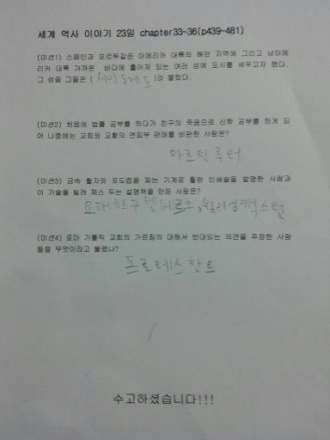 세계 역사 이야기 23일 chapter33~36(p439~481)
(미션1) 스페인과 포르투갈은 아메리카 대륙의 해안 지역에 그리고 남아메
리카 대륙 가까운 바다에 흩어져 있는 여러 섬에 도시를 세우고자 했다.
그 섬을 그들은 ( )라 불렀다.
(미션2) 처음에 법률 공부를 하다가 친구의 죽음으로 신학 공부를 하게 되
어 나중에는 교회와 교황의 면죄부 판매를 비판한 사람은?
마르틴 루터
(미션3) 금속 활자와 포도즙을 짜는 기계로 활판 인쇄술을 발명한 사람과
이 기술을 빌려 체스 두는 설명책을 만든 사람은?
요하네스 구텐베르크, 윌리엄 캑스턴
(미션4) 로마 가톨릭 교회의 가르침의 대해서 반대되는 의견을 주장한 사람
들을 무엇이라고 불렀나?
프로테스탄트
수고하셨습니다!!!